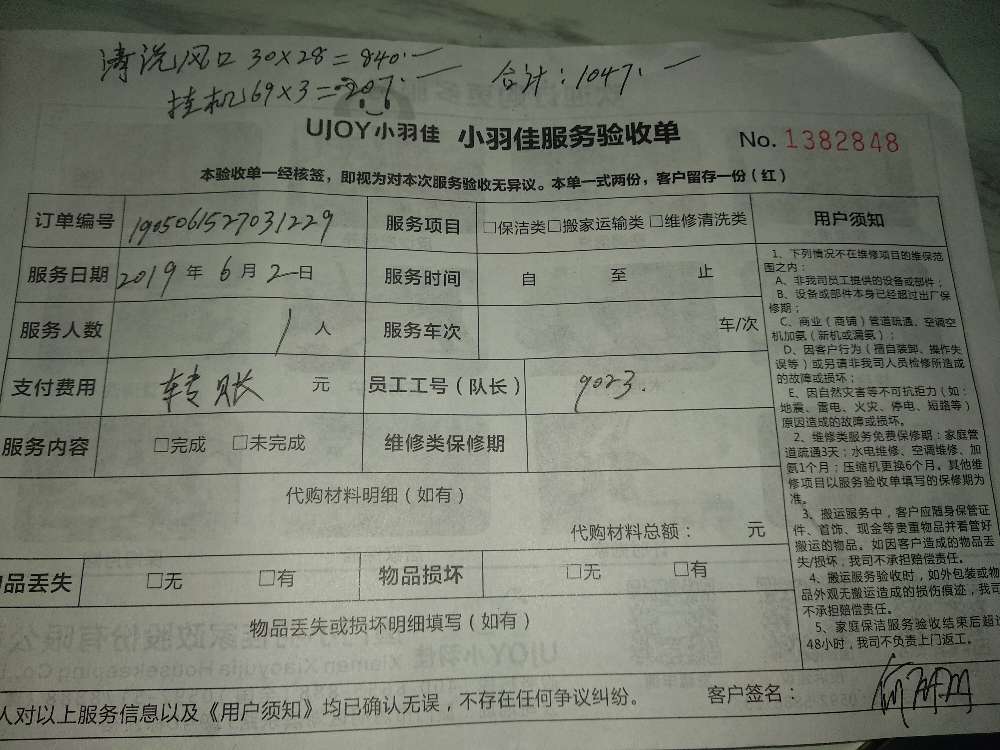 清洗风口 30×28=840.一
挂机69×3=207.一
合计:1047.一
UJOY小羽佳 小羽佳服务验收单 No. 1382848
本验收单一经核签，即视为对本次服务验收无异议。本单一式两份，客户留存一份（红）
订单编号 190506152703129 服务项目 □保洁类□搬家运输类 □维修清洗类
服务日期 2019 年 6 月 2 日 服务时间 自 至 止
服务人数 1 人 服务车次 车/次
支付费用 转账 元 员工工号（队长） 9023.
服务内容 □完成 □未完成 维修类保修期
代购材料明细（如有）
代购材料总额： 元
物品丢失 □无 □有 物品损坏 □无 □有
物品丢失或损坏明细填写（如有）
人对以上服务信息以及《用户须知》均已确认无误，不存在任何争议纠纷。 客户签名：
用户须知
1、下列情况不在维修项目的维保范
围之内：
A、非我司员工提供的设备或部件；
B、设备或部件本身已经超过出厂保
修期；
C、商业（商铺）管道疏通、空调空
机加氨（新机或漏氨）；
D、因客户行为（擅自装卸、操作失
误等）或另请非我司人员检修所造成
的故障或损坏；
E、因自然灾害等不可抗拒力（如：
地震、雷电、火灾、停电、短路等）
原因造成的故障或损坏。
2、维修类服务免费保修期：家庭管
道疏通3天；水电维修、空调维修、加
氨1个月；压缩机更换6个月。其他维
修项目以服务验收单填写的保修期为
准。
3、搬运服务中，客户应随身保管证
件、首饰、现金等贵重物品并看管好
搬运的物品。如因客户造成的物品丢
失/损坏，我司不承担赔偿责任。
4、搬运服务验收时，如外包装或物
品外观无搬运造成的损伤痕迹，我司
不承担赔偿责任。
5、家庭保洁服务验收结束后超过
48小时，我司不负责上门返工。